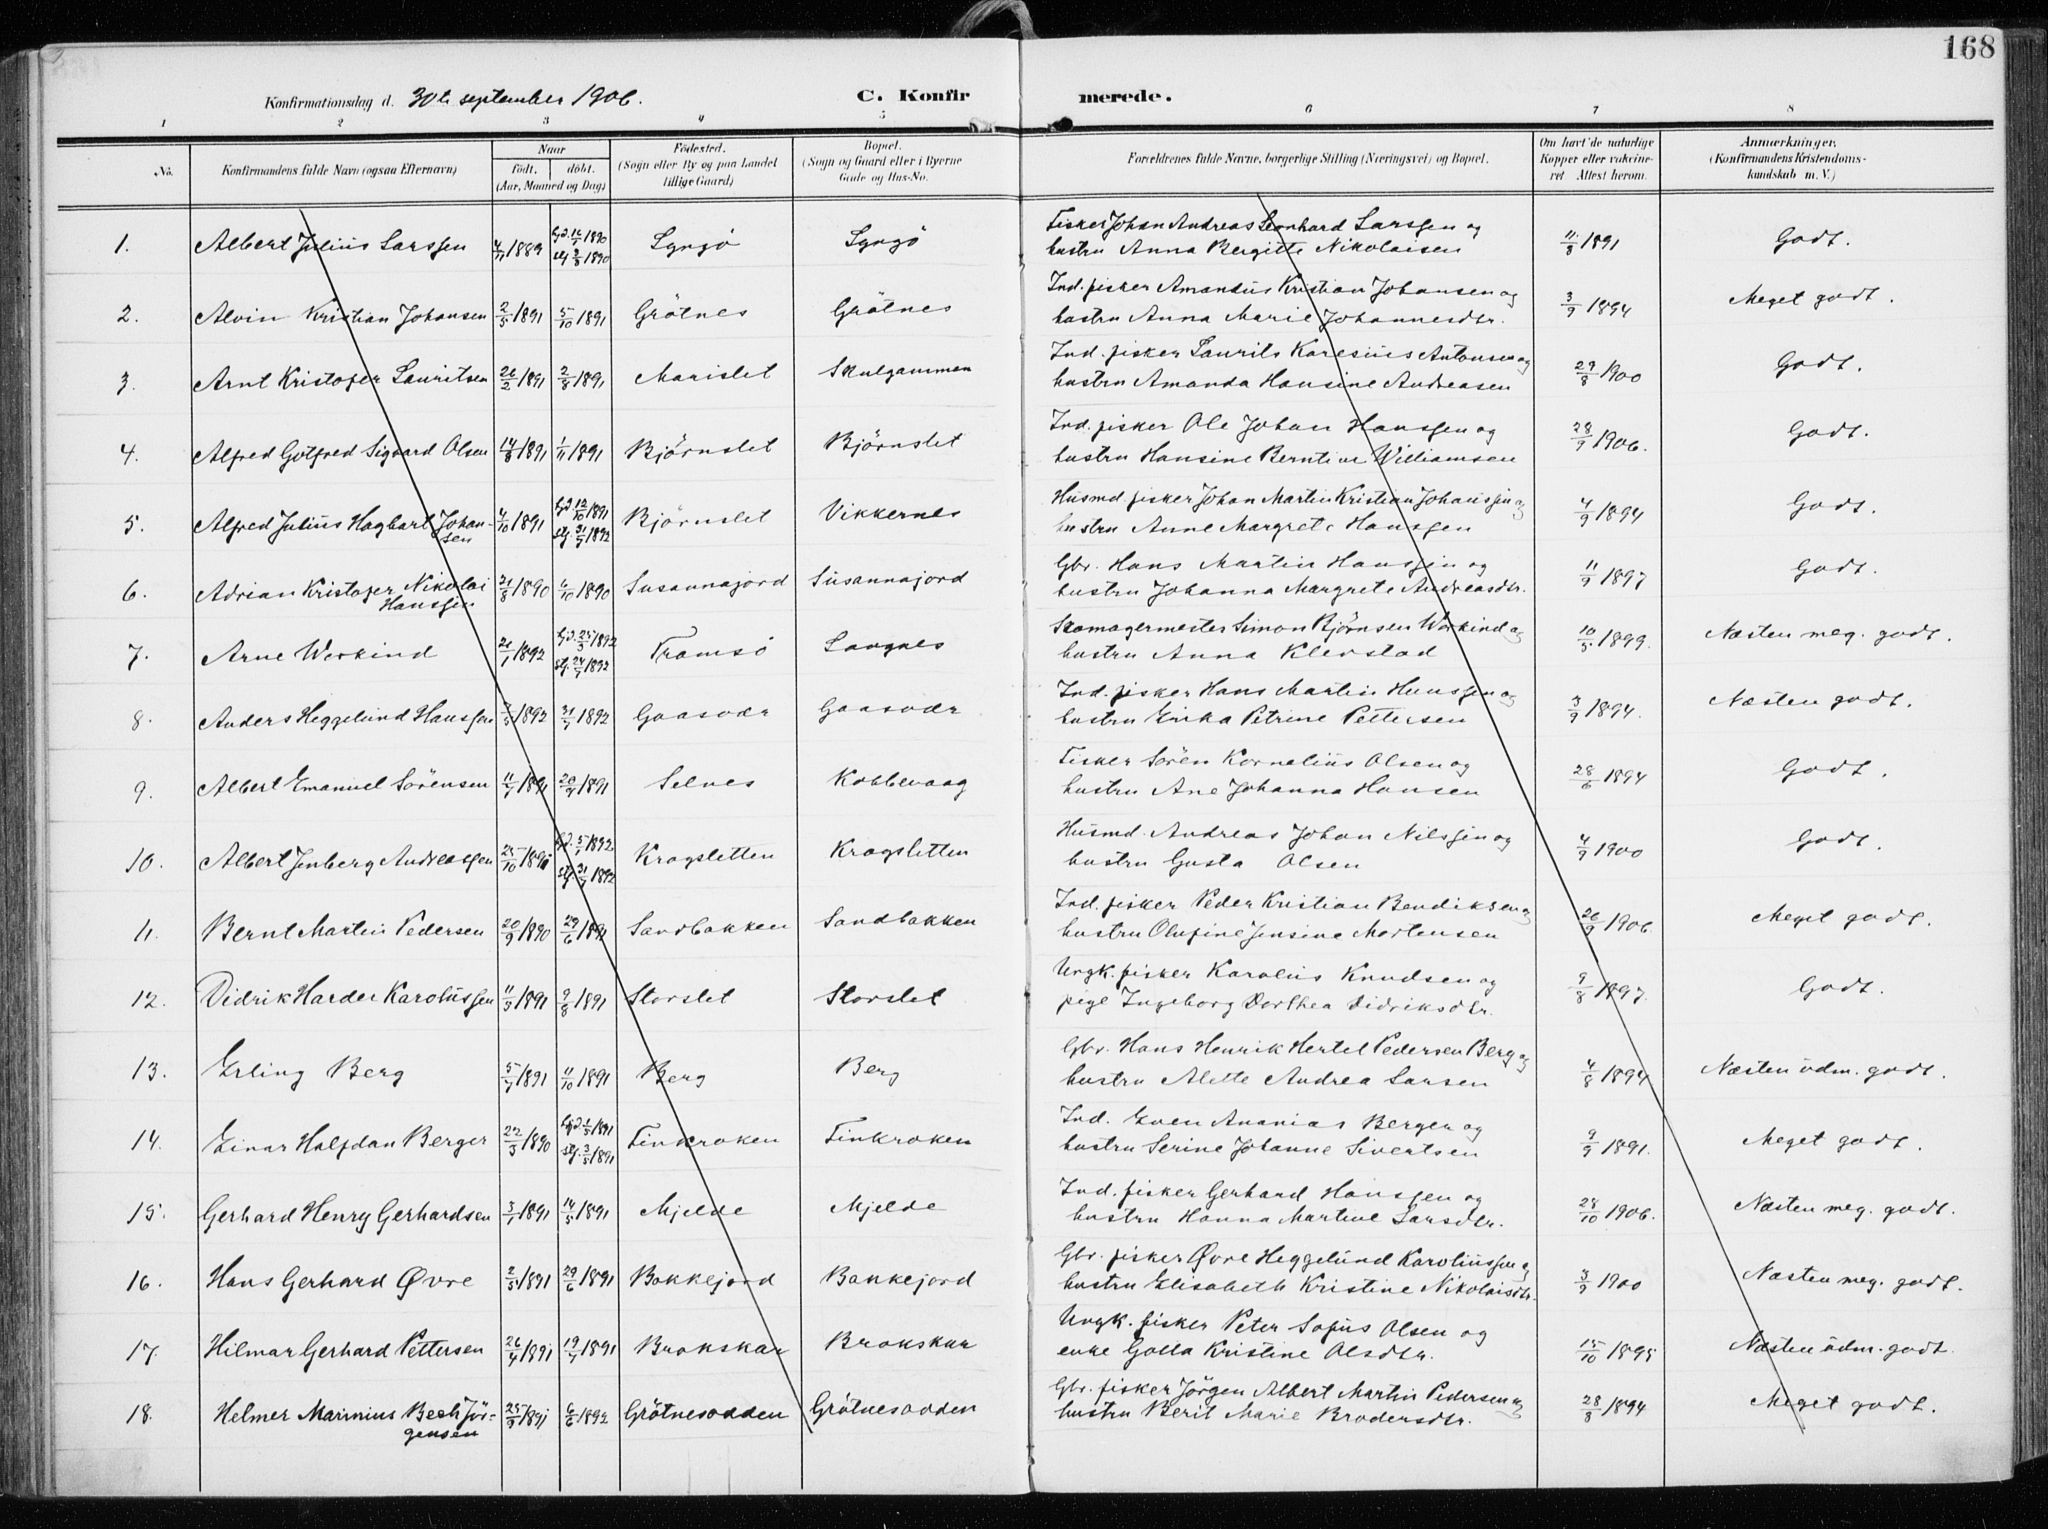 168
Konfirmationsdag d. 30te september 1906. C. Konfirmerede.
1 2 3 4 5 6 7 8
No. Konfirmandens fulde Navn (ogsaa Efternavn) Naar født. døbt. (Aar, Maaned og Dag) Fødested. (Sogn eller By og paa Landet tillige Gaard) Bopæl. (Sogn og Gaard eller i Byerne Gade og Hus-No. Forældrenes fulde Navne, borgerlige Stilling (Næringsvei) og Bopæl. Om havt de naturlige Kopper eller vakcineret Attest herom. Anmærkninger. (Konfirmandens Kristendomskundskab m. V.)
1. Albert Julius Larssen 4/11 1889 Lyngö Lyngö Fisker Johan Andreas Leonhard Larssen og 11/8 1891 Godt.
hustru Anna Bergitte Nikolaisen
2. Alvin Kristian Johansen 2/5 1891 5/10 1891 Grötnes Grötnes Ind. fisker Amandus Kristian Johansen og 3/9 1894 Meget godt.
hustru Anna Marie Johannesdtr.
3. Arnt Kristofer Lauritsen 26/2 1891 2/8 1891 Marislet Skulgammen Ind. fisker Laurits Karesius Antonsen og 29/8 1900 Godt.
hustru Amanda Hansine Andreasen
4. Alfred Gotfred Sigvard Olsen 14/8 1891 1/11 1891 Björnslet Björnslet Ind. fisker Ole Johan Hanssen og 28/9 1906. Godt.
hustru Hansine Berntine Williamsen
5. Alfred Julius Hagbart Johansen 4/10 1891 hjd. 12/10 1891 stf. 31/7 1892 Björnslet Vikkernes Husmd. fisker Johan Martin Kristian Johanssen og 4/9 1894 Godt.
hustru Anne Margrete Hanssen
6. Adrian Kristofer Nikolai Hanssen 31/8 1890 6/10 1890 Susannajord Susannajord Gbr. Hans Martin Hanssen og 11/9 1897 Godt.
hustru Johanna Margrete Andreasdtr.
7. Arne Workind 26/1 1892 hjd. 25/3 1892 stf. 24/7 1892 Tromsö Langnes Skomagermester Simon Björnsen Workind og 10/5 1899. Næsten meg. godt.
hustru Anna Klevstad
8. Anders Heggelund Hanssen 31/7 1892 Gaasvær Gaasvær Ind. fisker Hans Martin Hanssen og 3/9 1894. Næsten godt.
hustru Erika Petrine Pettersen
9. Albert Emanuel Sörensen 11/7 1891 20/9 1891 Selnes Kobbevaag Fisker Sören Kornelius Olsen og 28/6 1894 Godt.
hustru Ane Johanna Hansen
10. Albert Jenberg Andreassen 25/10 1891 hjd. 5/1 1892 stf. 31/7 1892 Kragsletten Kragsletten Husmd. Andreas Johan Nilssen og 4/9 1900 Godt.
hustru Gusta Olsen
11. Bernt Martin Pedersen 20/9 1890 29/6 1891 Sandbakken Sandbakken Ind. fisker Peder Kristian Bendiksen og 26/9 1906. Meget godt.
hustru Olufine Jensine Mortensen
12. Didrik Harder Karolussen 11/5 1891 9/8 1891 Storslet Storslet Ungk. fisker Karolus Knudsen og 9/8 1897. Godt.
pige Ingeborg Dorthea Didriksdtr.
13. Erling Berg 5/7 1891 11/10 1891 Berg Berg Gbr. Hans Henrik Hertel Pedersen Berg og 4/8 1894 Næsten udm. godt.
hustru Alette Andrea Larsen
14. Einar Halfdan Berger 22/3 1890 Finkroken Finkroken Ind. Even Ananias Berger og 9/9 1891. Meget godt.
hustru Serine Johanne Sivertsen
15. Gerhard Henry Gerhardsen 3/1 1891 14/5 1891 Mjelde Mjelde Ind. fisker Gerhard Hanssen og 28/10 1906. Næsten meg. godt.
hustru Hanna Martine Larsdtr.
16. Hans Gerhard Øvre 2/5 1891 29/6 1891 Bakkejord Bakkejord Gbr. fisker Øvre Heggelund Karolüssen og 3/9 1900 Næsten meg. godt.
hustru Elisabeth Kristine Nikolaisdtr.
17. Hilmar Gerhard Pettersen 26/4 1891 19/7 1891 Brokskar Brokskar Ungk. fisker Peter Sofus Olsen og 15/10 1895 Næsten udm. godt.
enke Golla Kristine Olsdtr.
18. Helmer Marinius Bech Jörgensen 25/9 1891 6/6 1892 Grötnesodden Grötnesodden Gbr. fisker Jörgen Albert Martin Pedersen og 28/8 1894 Meget godt.
hustru Berit Marie Brodersdtr.